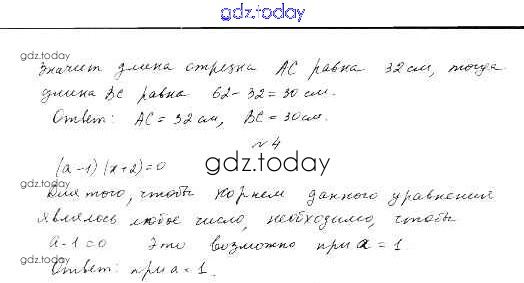 gdz.today
gdz.today
значит длина отрезка AC равна 32 см, тогда
длина BC равна 62-32=30 см.
Ответ: AC = 32 см, BC = 30 см.
gdz.today
№4
(a-1)(x+2)=0
gdz.today
Для того, чтобы корнем данного уравнения
являлось любое число, необходимо, чтобы
a-1=0 Это возможно при a = 1.
gdz.today
Ответ: при a = 1.